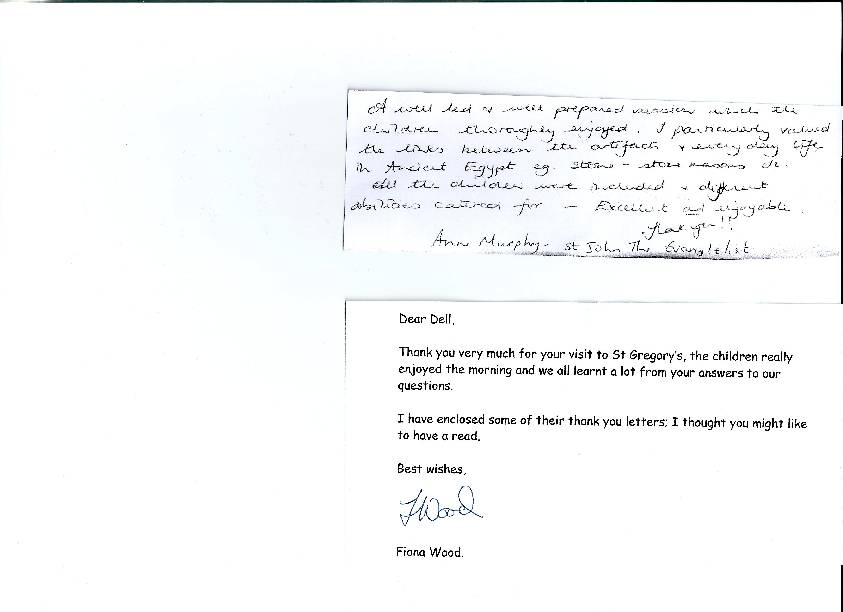 A well led & well prepared session which the
children thoroughly enjoyed. I particularly valued
the links between the artifacts & every day life
in Ancient Egypt eg. stone - stone masons etc.
All the children were included & different
abilities catered for - Excellent and enjoyable.
Thank you!!
Anne Murphy - St John The Evangelist
Dear Dell,
Thank you very much for your visit to St Gregory's, the children really
enjoyed the morning and we all learnt a lot from your answers to our
questions.
I have enclosed some of their thank you letters; I thought you might like
to have a read.
Best wishes,
FWood
Fiona Wood.